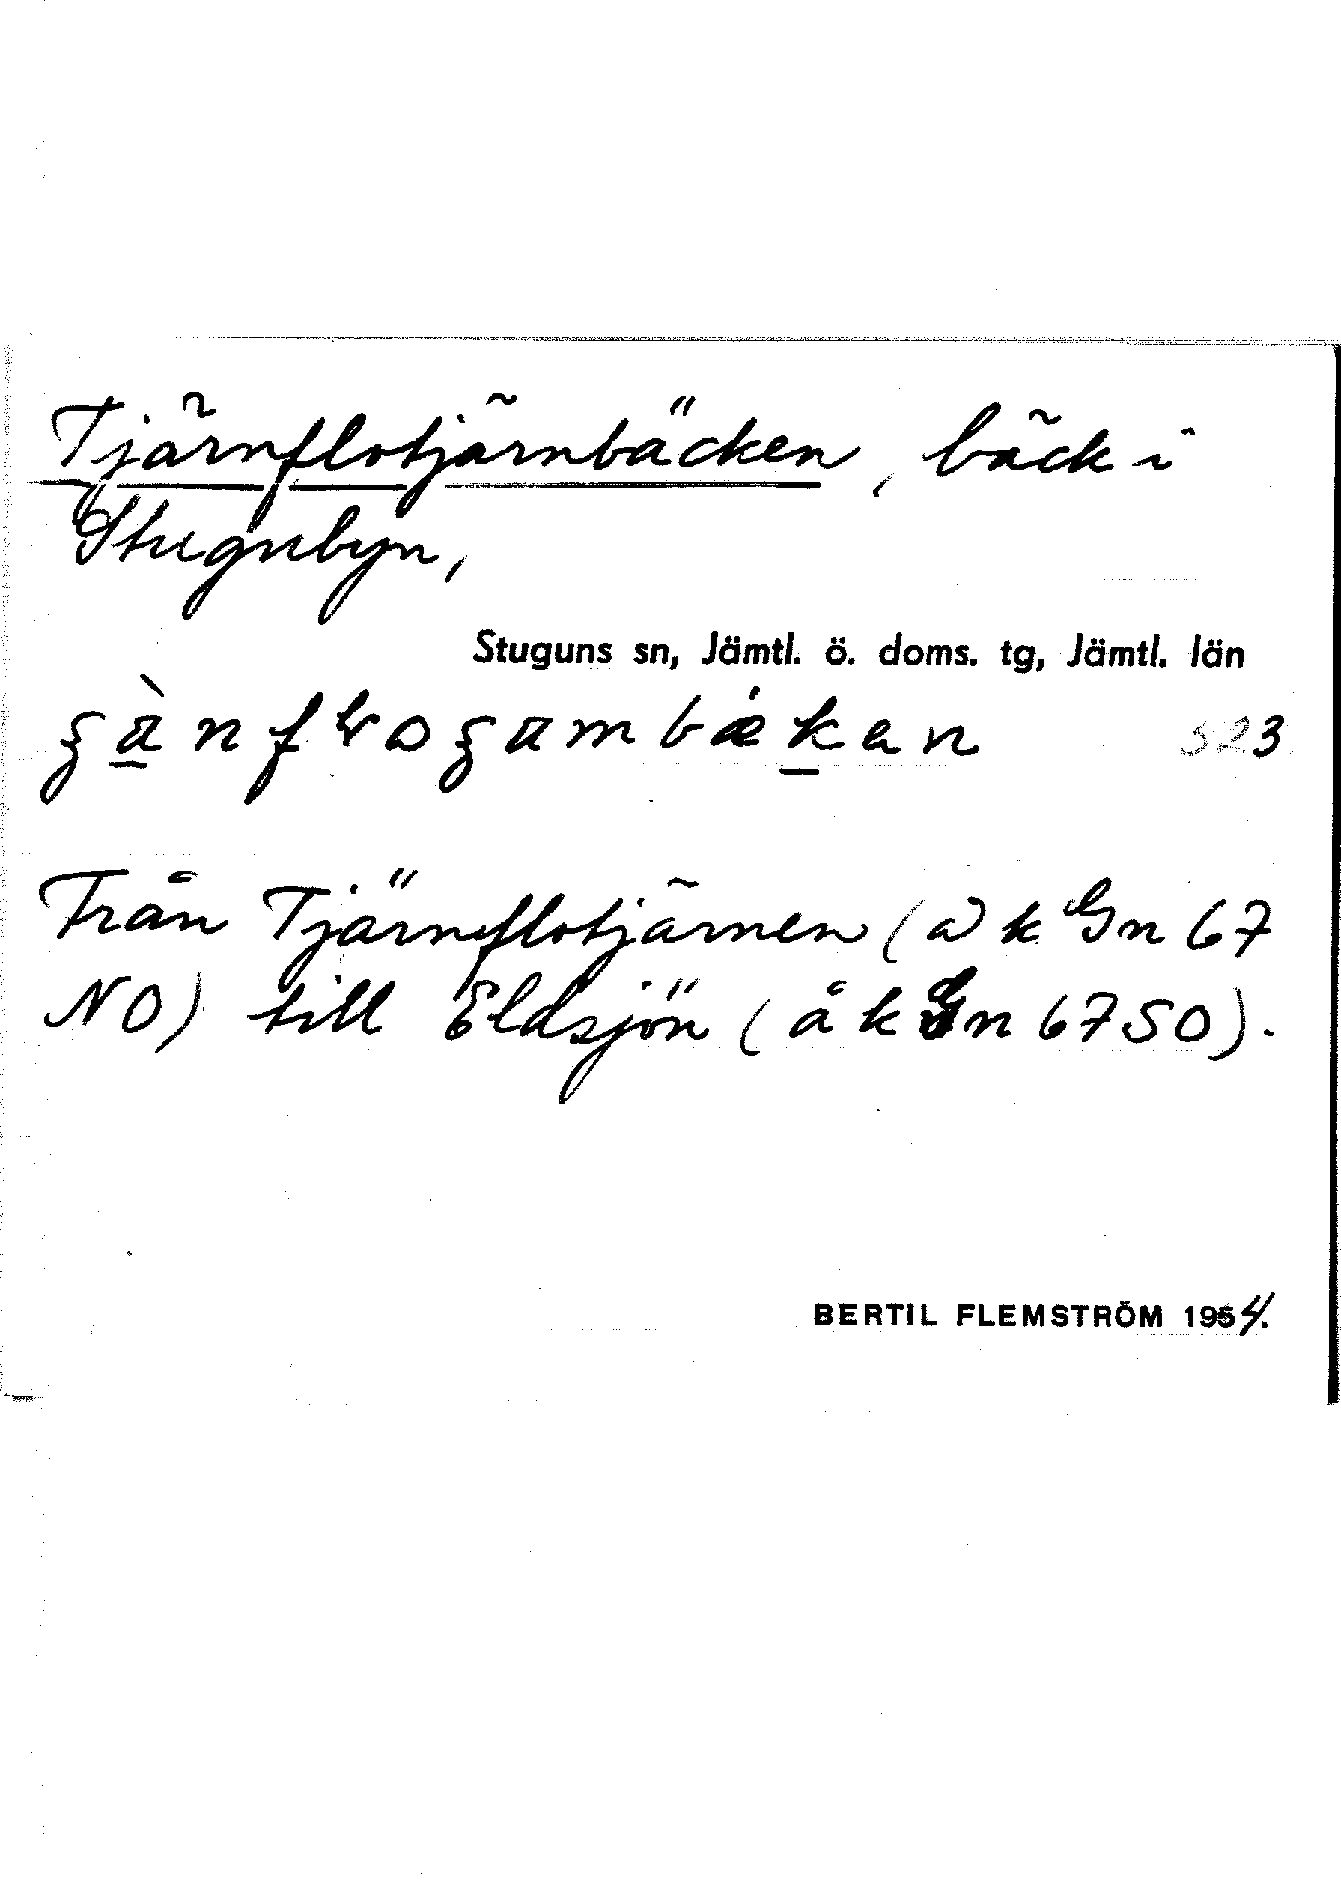 Tjärnflotjärnbäcken, bäck i
Stugubyn,
Stuguns sn, Jämtl. ö. doms. tg, Jämtl. län
523
Från Tjärnflotjärnen (å k Gn 67
NO) till Eldsjön (å k Gn 67 SO).
BERTIL FLEMSTRÖM 1954.